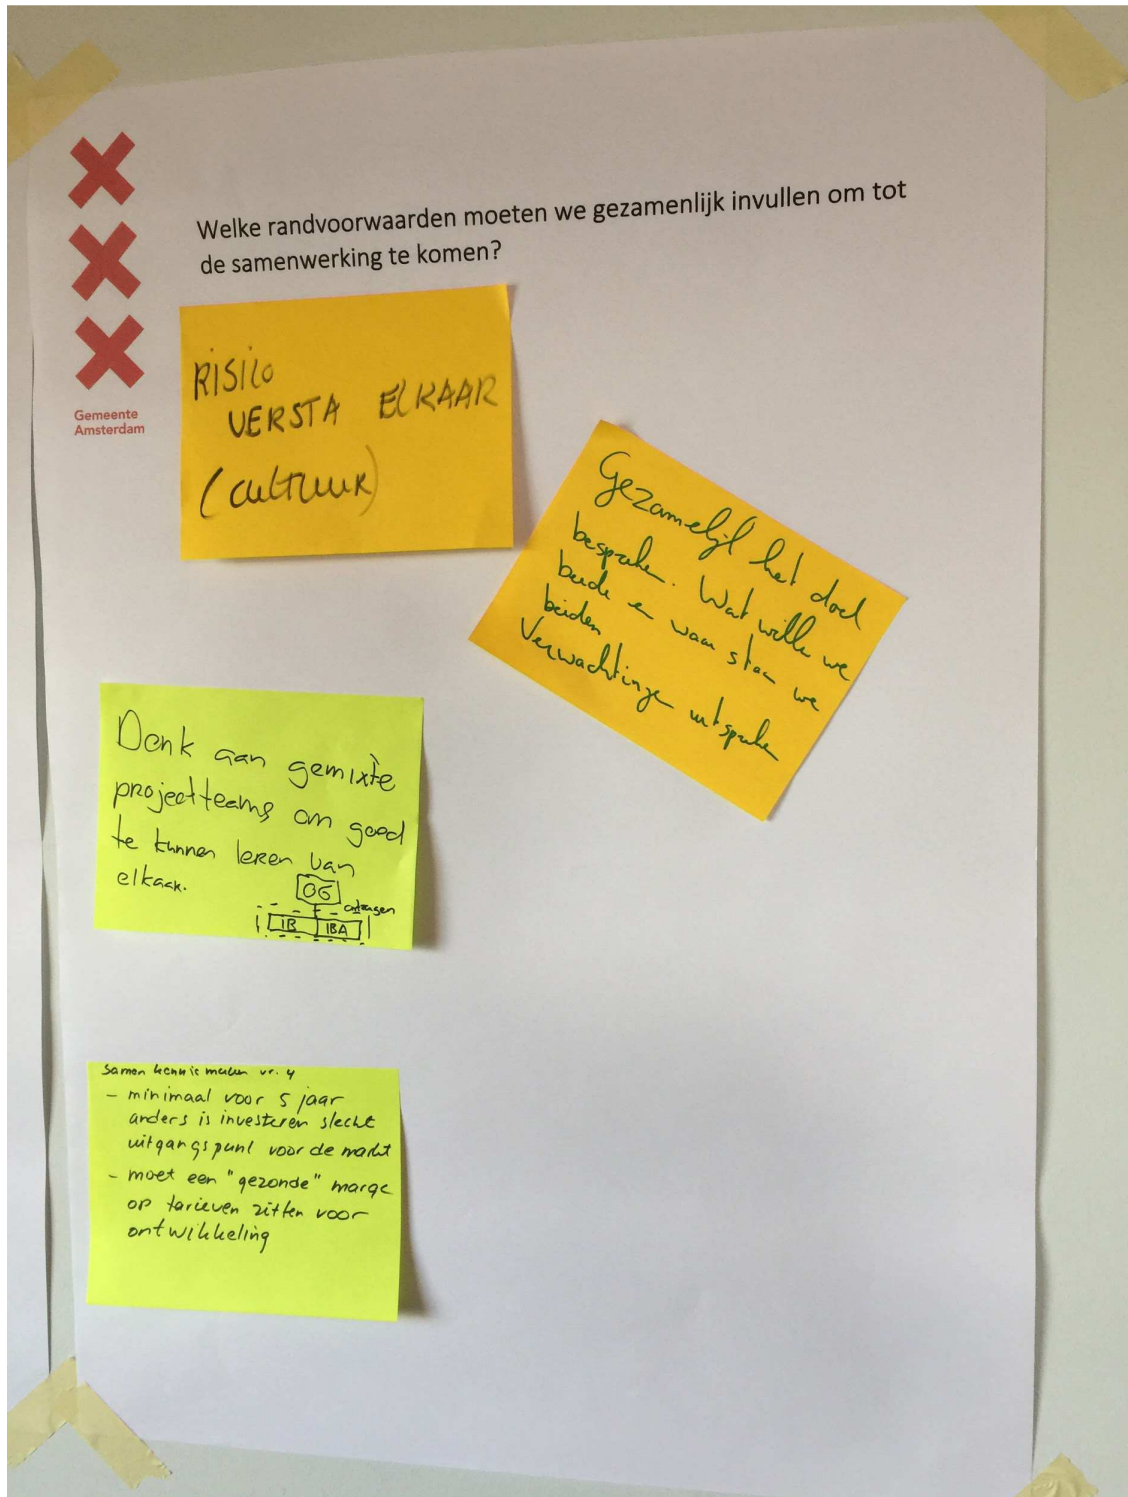 Welke randvoorwaarden moeten we gezamenlijk invullen om tot
de samenwerking te komen?
Gemeente
Amsterdam
RISICO
VERSTA ELKAAR
(CULTUUR)
Gezamelijk het doel
bespreken. Wat willen we
beide en waar staan we
beiden
Verwachtingen uitspreken
Denk aan gemixte
projectteams om goed
te kunnen leren van
elkaar.
OG
IB IBA
Samen kennis maken vr. 4
- minimaal voor 5 jaar
anders is investeren slecht
uitgangspunt voor de markt
- moet een "gezonde" marge
op tarieven zitten voor
ontwikkeling